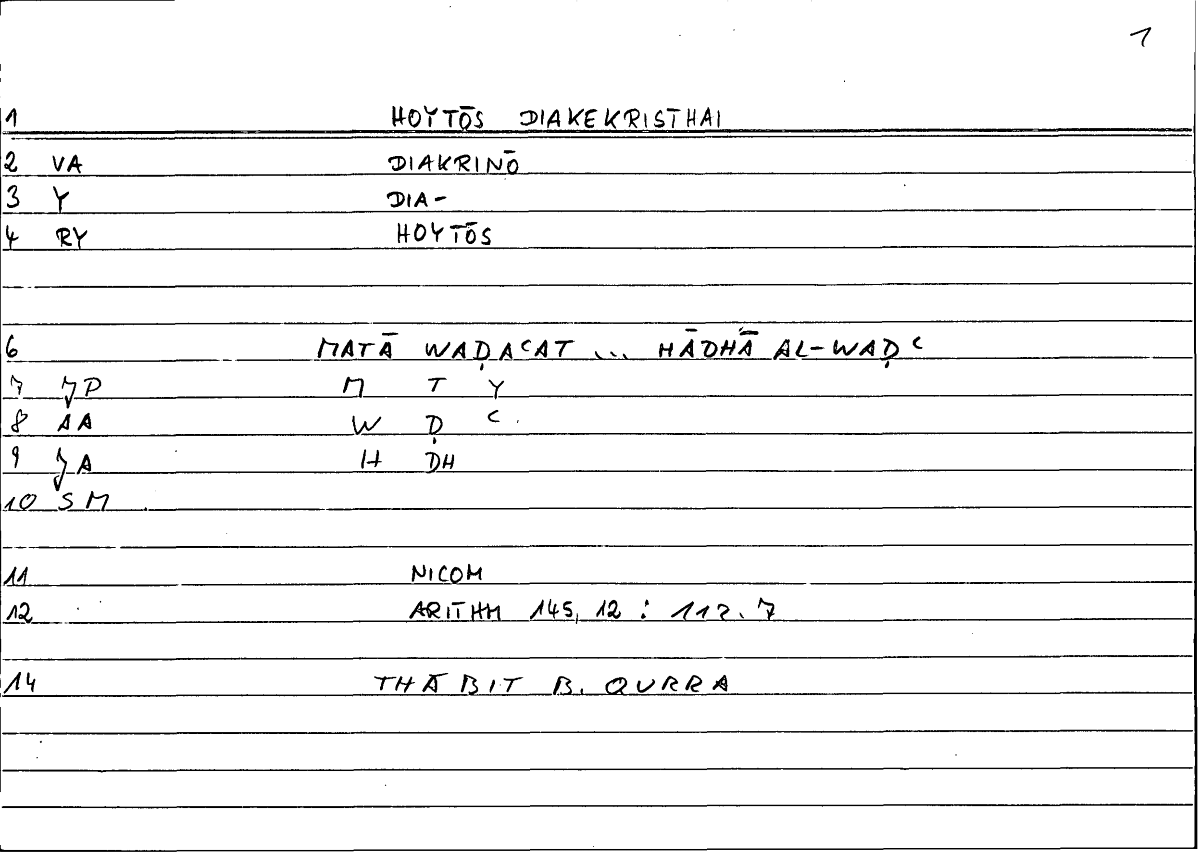 1
1 HOYTŌS DIAKEKRISTHAI
2 VA DIAKRINŌ
3 Y DIA-
4 RY HOYTŌS
6 MATĀ WAḌAʿAT ... HĀDHĀ AL-WAḌʿ
7 JP M T Y
8 AA W Ḍ ʿ
9 JA H DH
10 SM
11 NICOM
12 ARITHM 145, 12 : 112. 7
14 THĀBIT B. QURRA